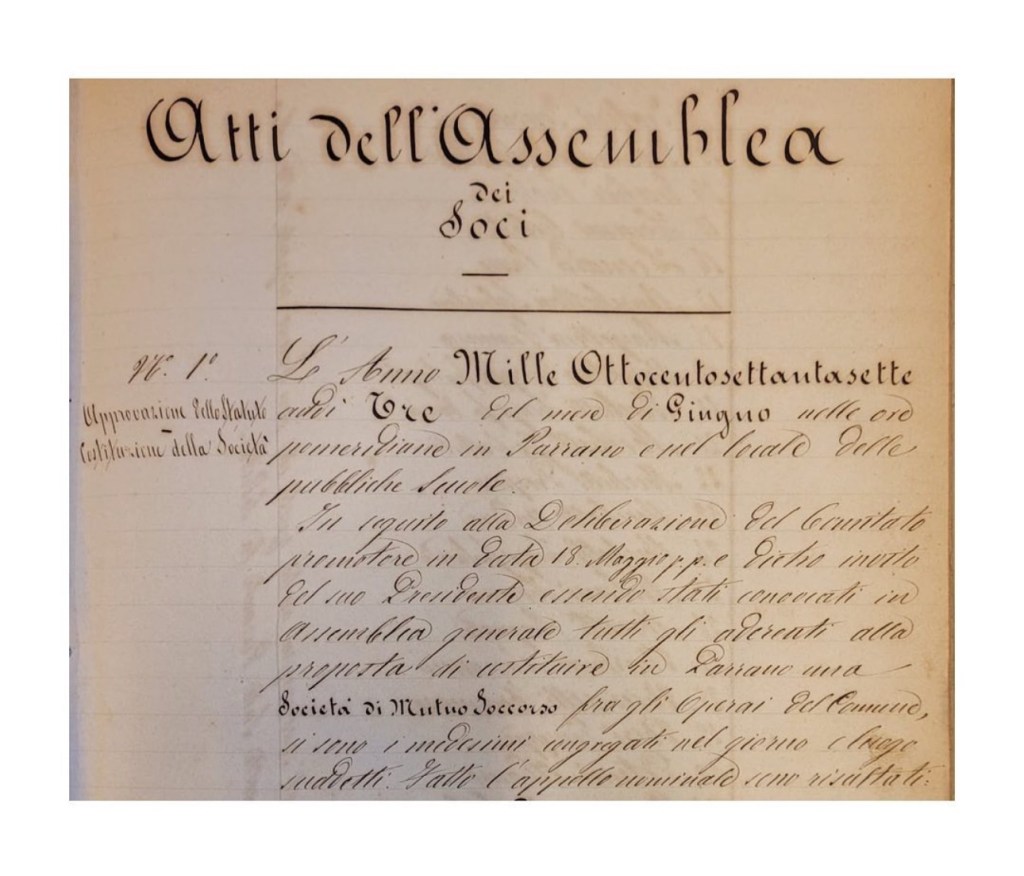 Atti dell'Assemblea
dei
Soci
N.° 1°.
Approvazione dello Statuto
Costituzione della Società
L'Anno Mille Ottocentosettantasette
addì Tre del mese di Giugno nelle ore
pomeridiane in Parrano e nel locale delle
pubbliche Scuole.
In seguito alla Deliberazione del Comitato
promotore in data 18. Maggio p.p. e dietro invito
del suo Presidente essendo stati convocati in
Assemblea generale tutti gli aderenti alla
proposta di costituire in Parrano una
Società di Mutuo Soccorso fra gli Operai del Comune,
si sono i medesimi congregati nel giorno e luogo
suddetti. Fatto l'appello nominale sono risultati: